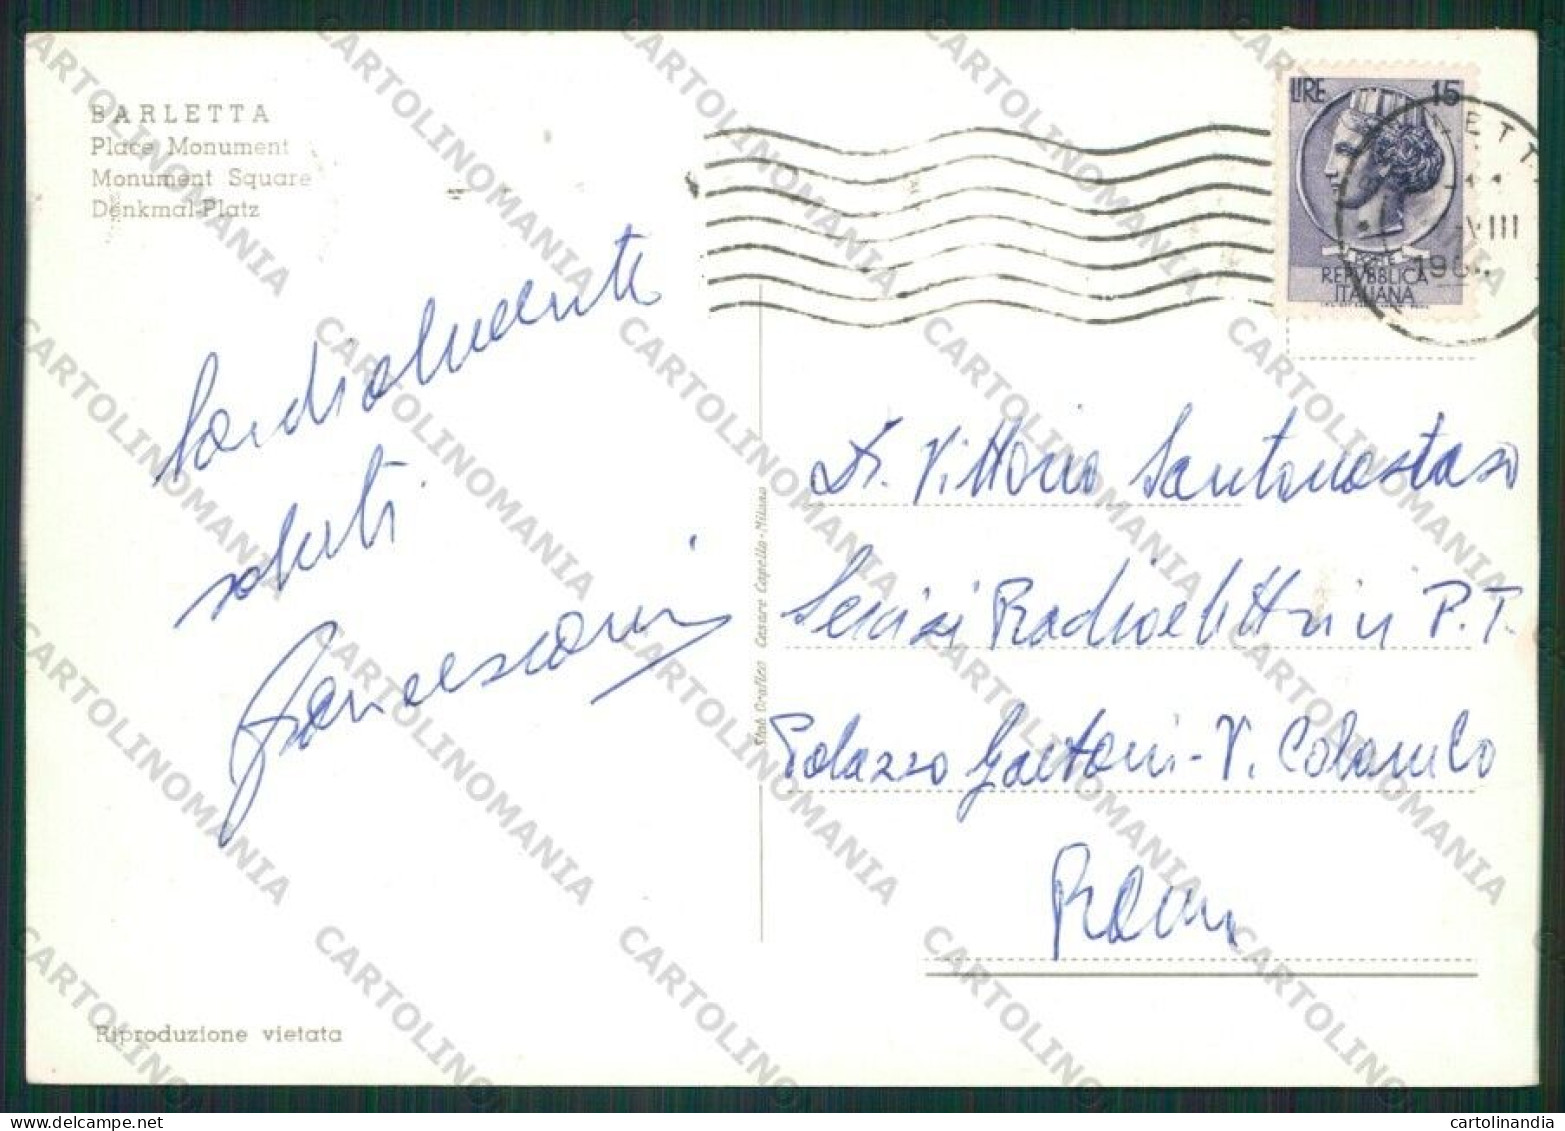 BARLETTA
Place Monument
Monument Square
Denkmal-Platz
LIRE 15
VIII
POSTE
REPVBBLICA
ITALIANA
Cordialmente
saluti
Francescani
Stab. Grafico Cesare Capello - Milano
Dr. Vittorio Santonastaso
Servizi Radioelettrici P.T.
Palazzo Gaetani - V. Colombo
Roma
Riproduzione vietata
CARTOLINOMANIA
cartolinandia